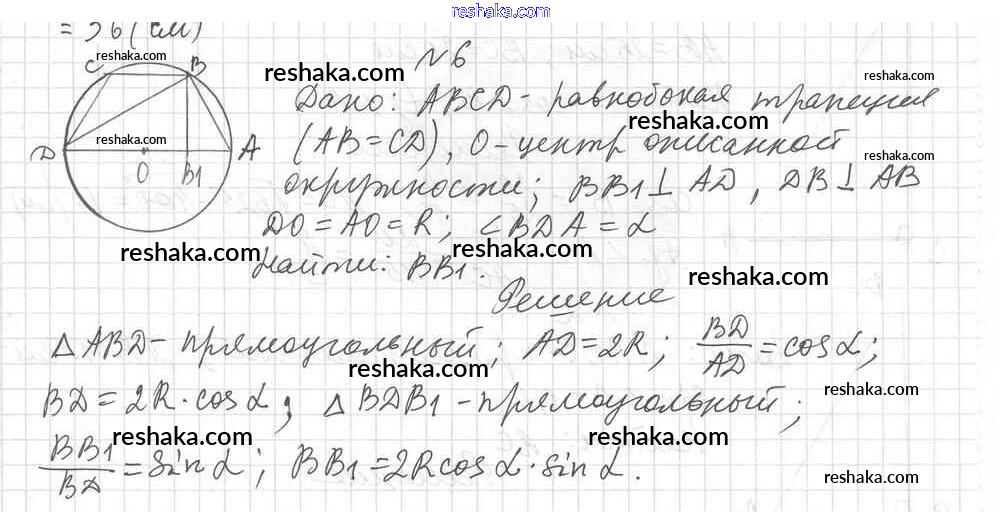 reshaka.com
= 36 (см)
reshaka.com
C B
reshaka.com
D O B1 A
№6
reshaka.com
reshaka.com
Дано: ABCD - равнобокая трапеция
reshaka.com
(AB = CD), O - центр описанной
reshaka.com
окружности; BB1 ⊥ AD, DB ⊥ AB
DO = AO = R; ∠BDA = α
reshaka.com reshaka.com
Найти: BB1.
reshaka.com
Решение
△ABD - прямоугольный; AD = 2R; BD/AD = cos α;
reshaka.com
reshaka.com
BD = 2R · cos α; △BDB1 - прямоугольный;
reshaka.com reshaka.com
BB1/BD = sin α; BB1 = 2R cos α · sin α.
reshaka.com